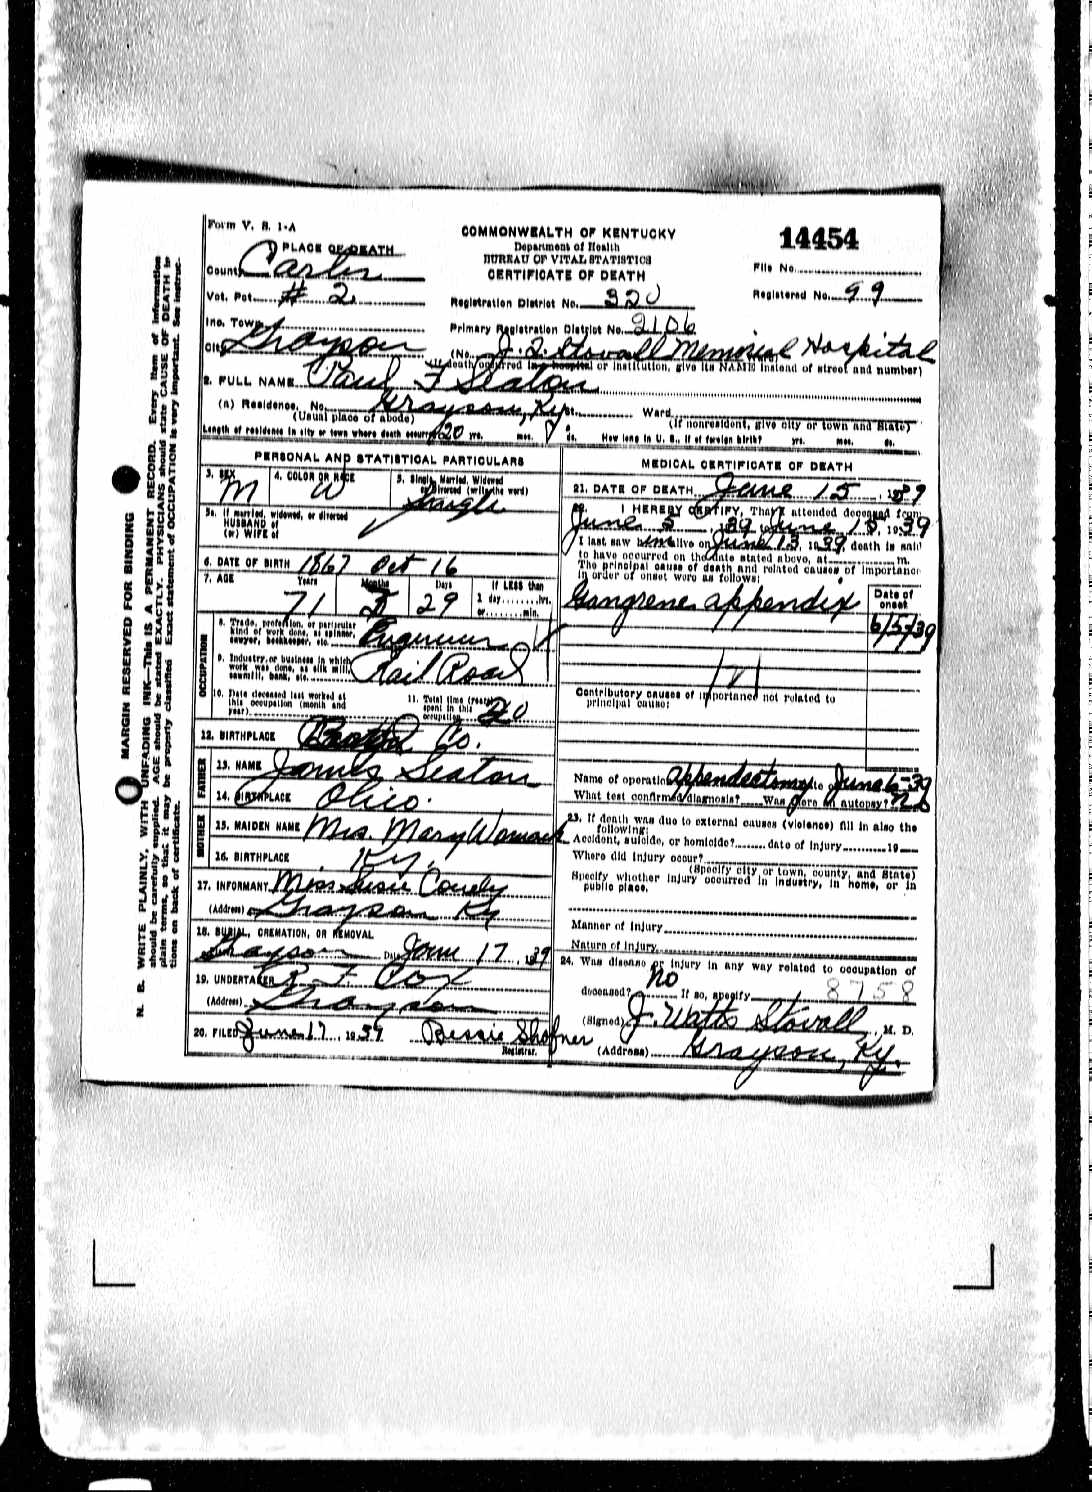 Form V. S. 1-A
1 PLACE OF DEATH
County Carter
Vot. Pct. # 2
Inc. Town
City Grayson
COMMONWEALTH OF KENTUCKY
Department of Health
BUREAU OF VITAL STATISTICS
CERTIFICATE OF DEATH
Registration District No. 320
Primary Registration District No. 2106
14454
File No.
Registered No. 99
(No. J. Q. Stovall Memorial Hospital
(If death occurred in a hospital or institution, give its NAME instead of street and number)
2. FULL NAME Paul F Seaton
(a) Residence. No. Grayson, Ky St. Ward
(Usual place of abode) (If nonresident, give city or town and State)
Length of residence in city or town where death occurred 20 yrs. mos. ds. How long in U. S., if of foreign birth? yrs. mos. ds.
PERSONAL AND STATISTICAL PARTICULARS
3. SEX M
4. COLOR OR RACE W
5. Single, Married, Widowed
or Divorced (write the word)
Single
5a. If married, widowed, or divorced
HUSBAND of
(or) WIFE of
6. DATE OF BIRTH 1867 Oct 16
7. AGE Years Months Days If LESS than
71 29 1 day hrs.
or min.
OCCUPATION
8. Trade, profession, or particular
kind of work done, as spinner,
sawyer, bookkeeper, etc. Engineer
9. Industry or business in which
work was done, as silk mill,
sawmill, bank, etc. Rail Road
10. Date deceased last worked at
this occupation (month and
year)
11. Total time (years)
spent in this
occupation 20
12. BIRTHPLACE Co.
FATHER
13. NAME James Seaton
14. BIRTHPLACE Ohio.
MOTHER
15. MAIDEN NAME Mrs. Mary Womack
16. BIRTHPLACE Ky.
17. INFORMANT Miss Susie
(Address) Grayson Ky
18. BURIAL, CREMATION, OR REMOVAL
Grayson Date June 17, 1939
19. UNDERTAKER R. F. Cox
(Address) Grayson
20. FILED June 17, 1939 Bessie Shofner
Registrar.
MEDICAL CERTIFICATE OF DEATH
21. DATE OF DEATH June 15, 1939
22. I HEREBY CERTIFY, That I attended deceased from
June 5, 1939 to June 15, 1939
I last saw him alive on June 15, 1939, death is said
to have occurred on the date stated above, at m.
The principal cause of death and related causes of importance
in order of onset were as follows:
Date of
onset
Gangrene appendix
6/5/39
121
Contributory causes of importance not related to
principal cause:
Name of operation appendectomy Date of June 6-39
What test confirmed diagnosis? Was there an autopsy? No
23. If death was due to external causes (violence) fill in also the
following:
Accident, suicide, or homicide? date of injury 19
Where did injury occur?
(Specify city or town, county, and State)
Specify whether injury occurred in industry, in home, or in
public place.
Manner of injury
Nature of injury
24. Was disease or injury in any way related to occupation of
deceased? No If so, specify 8758
(Signed) J. Watts Stovall, M. D.
(Address) Grayson, Ky.
MARGIN RESERVED FOR BINDING
N. B. WRITE PLAINLY, WITH UNFADING INK—THIS IS A PERMANENT RECORD. Every item of information
should be carefully supplied. AGE should be stated EXACTLY. PHYSICIANS should state CAUSE OF DEATH in
plain terms, so that it may be properly classified. Exact statement of OCCUPATION is very important. See instruc-
tions on back of certificate.